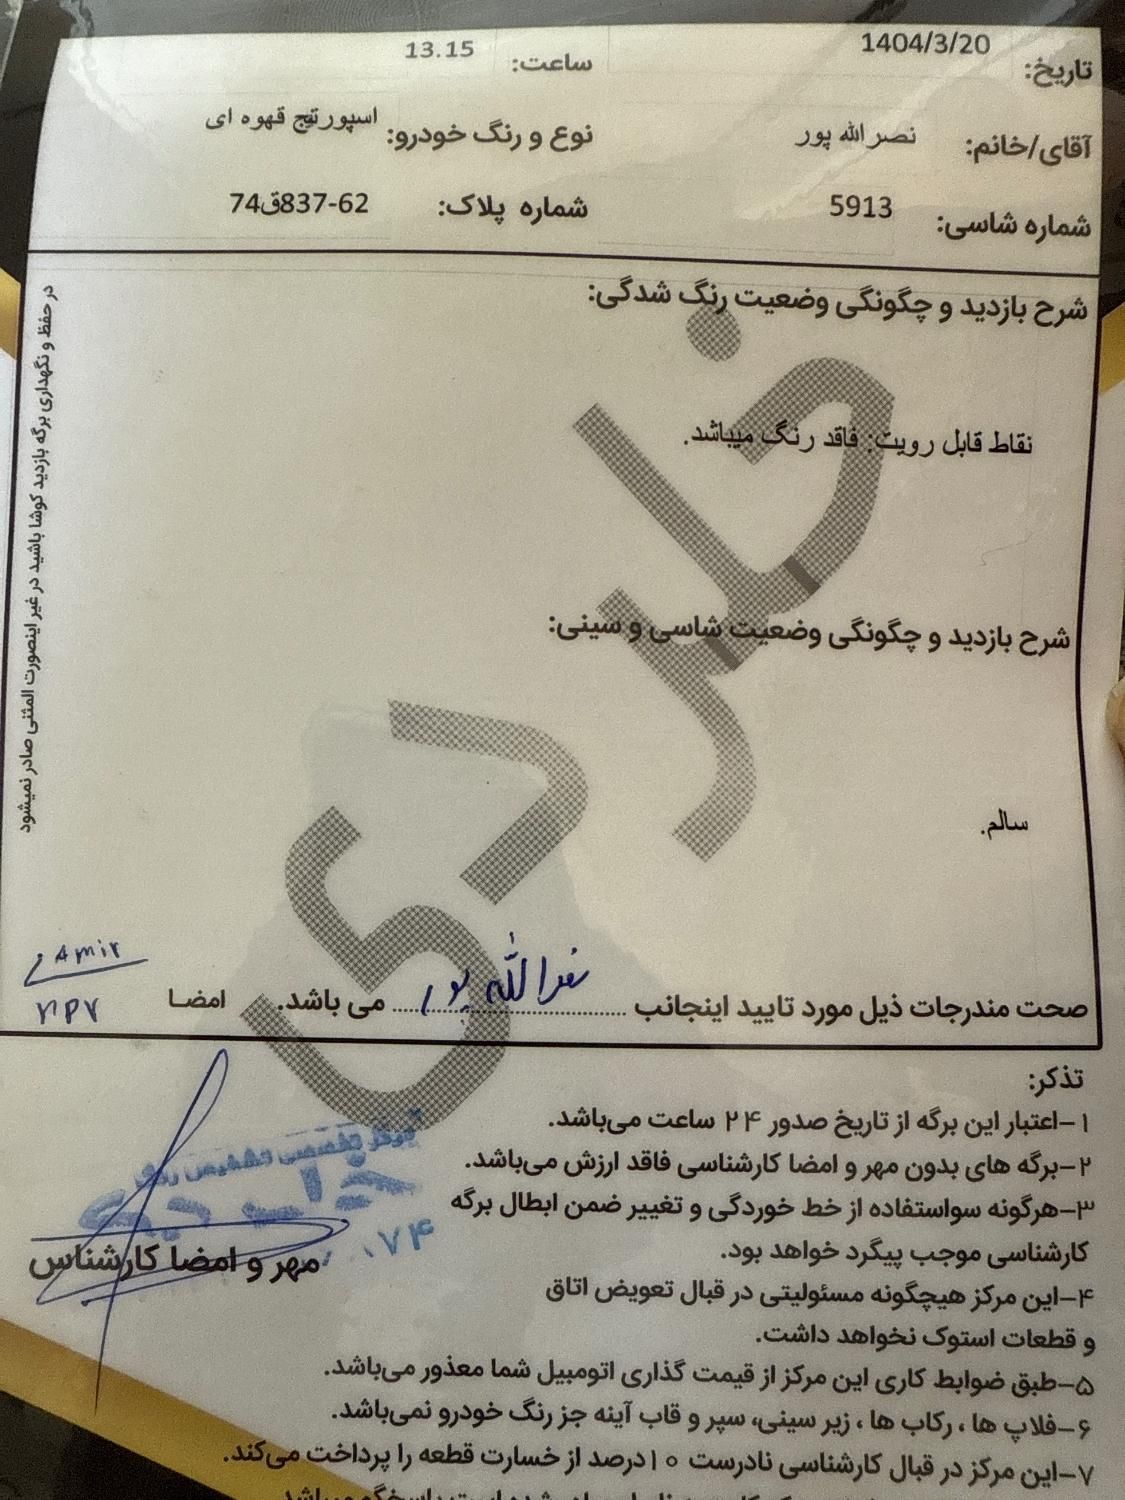 تاریخ: 1404/3/20 ساعت: 13.15
آقای/خانم: نصرالله پور نوع و رنگ خودرو: اسپورتیج قهوه ای
شماره شاسی: 5913 شماره پلاک: 74ق837-62
شرح بازدید و چگونگی وضعیت رنگ شدگی:
نقاط قابل رویت: فاقد رنگ میباشد.
شرح بازدید و چگونگی وضعیت شاسی و سینی:
سالم.
در حفظ و نگهداری برگه بازدید کوشا باشید در غیر اینصورت المثنی صادر نمیشود
صحت مندرجات ذیل مورد تایید اینجانب نصرالله پور می باشد. امضا
Amir
تذکر:
۱-اعتبار این برگه از تاریخ صدور ۲۴ ساعت می‌باشد.
۲-برگه های بدون مهر و امضا کارشناسی فاقد ارزش می‌باشد.
۳-هرگونه سواستفاده از خط خوردگی و تغییر ضمن ابطال برگه
کارشناسی موجب پیگرد خواهد بود.
۴-این مرکز هیچگونه مسئولیتی در قبال تعویض اتاق
و قطعات استوک نخواهد داشت.
۵-طبق ضوابط کاری این مرکز از قیمت گذاری اتومبیل شما معذور می‌باشد.
۶-فلاپ ها ، رکاب ها ، زیر سینی، سپر و قاب آینه جز رنگ خودرو نمی‌باشد.
۷-این مرکز در قبال کارشناسی نادرست ۱۰درصد از خسارت قطعه را پرداخت می‌کند.
مرکز تخصصی تشخیص رنگ
مهر و امضا کارشناس